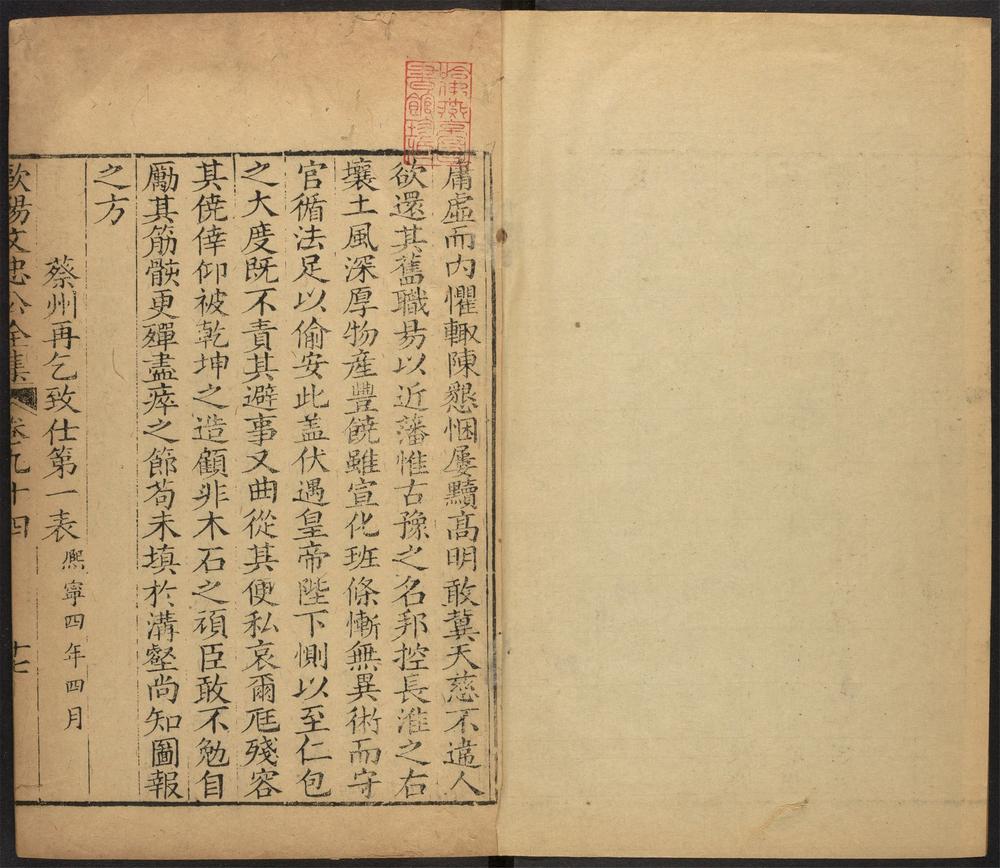 庸虛而内懼輙陳懇悃屢黷髙明敢冀天慈不違人
欲還其舊職易以近藩惟古豫之名邦控長淮之右
壤土風深厚物産豐饒雖宣化班條慚無異術而守
官循法足以偷安此盖伏遇皇帝陛下惻以至仁包
之大度既不責其避事又曲從其便私哀爾尫殘容
其僥倖仰被乾坤之造顧非木石之頑臣敢不勉自
勵其筋骸更殫盡瘁之節苟未填於溝壑尚知圖報
之方
蔡州再乞致仕第一表 熈寧四年四月
歐陽文忠公全集 卷九十四 十七